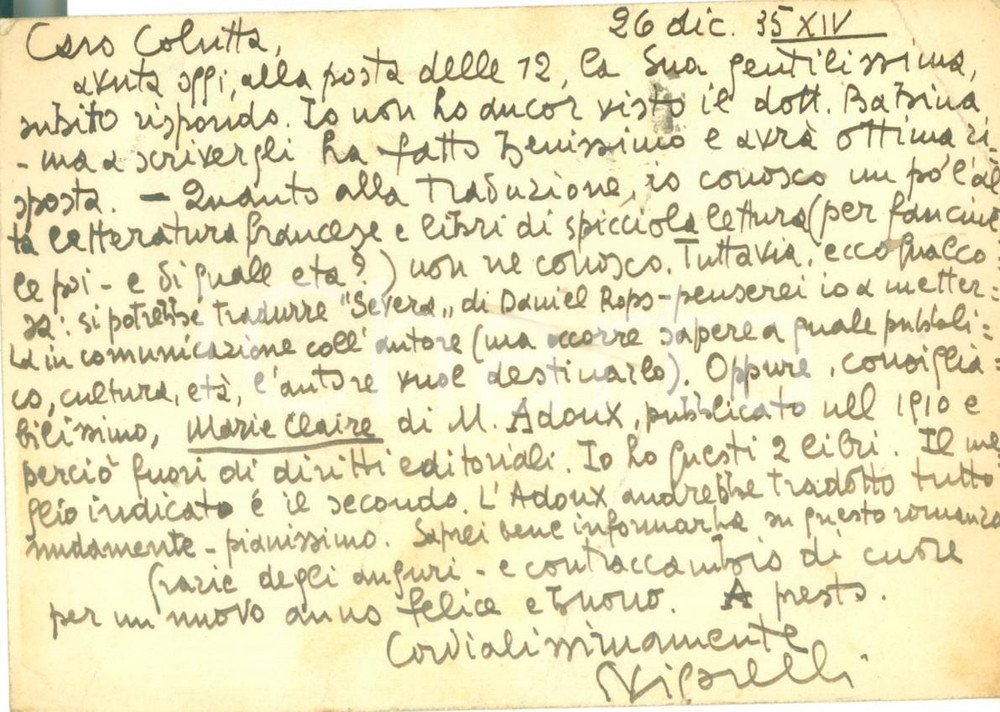 26 dic. 35 XIV
Caro Colutta,
avuta oggi, alla posta delle 12, la Sua gentilissima,
subito rispondo. Io non ho ancor visto il dott.
- ma a scrivergli ha fatto benissimo e avrà ottima ri-
sposta. — Quanto alla traduzione, io conosco un po' l'al
ta letteratura francese e libri di spicciola lettura (per fanciul
le poi - e di quale età?) non ne conosco. Tuttavia, ecco qualco=
sa: si potrebbe tradurre "Severa" di Daniel Rops - penserei io a metter=
La in comunicazione coll'autore (ma occorre sapere a quale pubbli=
co, cultura, età, l'autore vuol destinarlo). Oppure, consiglia=
bilissimo, Marie Claire di M. Adoux, pubblicato nell 1910 e
perciò fuori di diritti editoriali. Io ho questi 2 libri. Il me
glio indicato é il secondo. L'Adoux andrebbe tradotto tutto
nudamente - pianissimo. Saprei bene informarLa su questo romanzo
Grazie degli auguri - e contraccambio di cuore
per un nuovo anno felice e buono. A presto.
Cordialissimamente